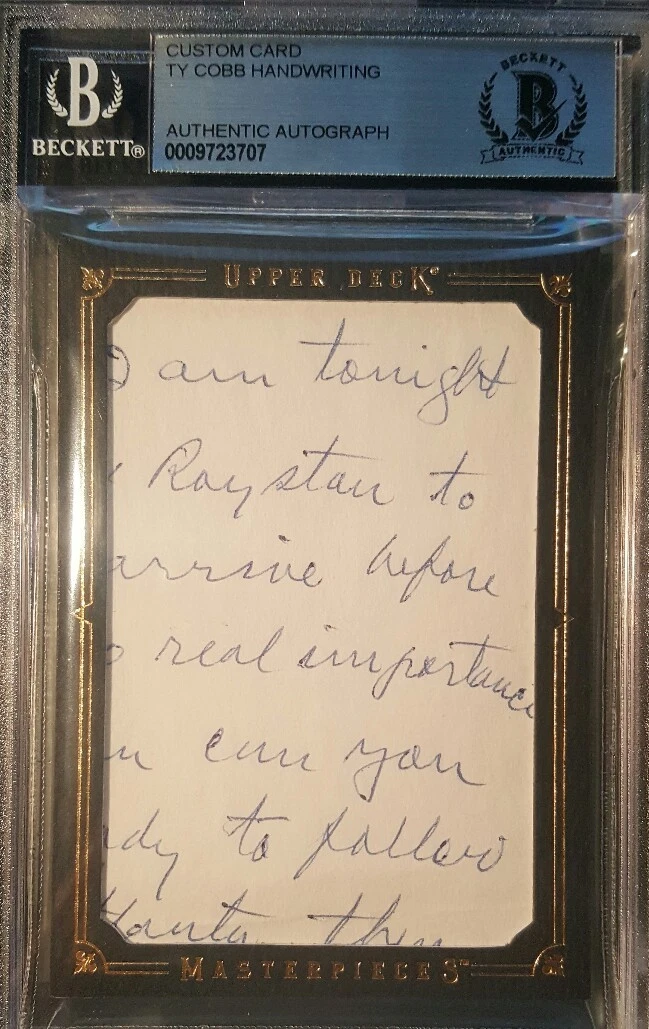 CUSTOM CARD
TY COBB HANDWRITING
B
BECKETT®
AUTHENTIC AUTOGRAPH
0009723707
BECKETT
B
AUTHENTIC
UPPER DECK
am tonight
Royston to
arrive before
real importance
can you
dy to follow
then
MASTERPIECES™